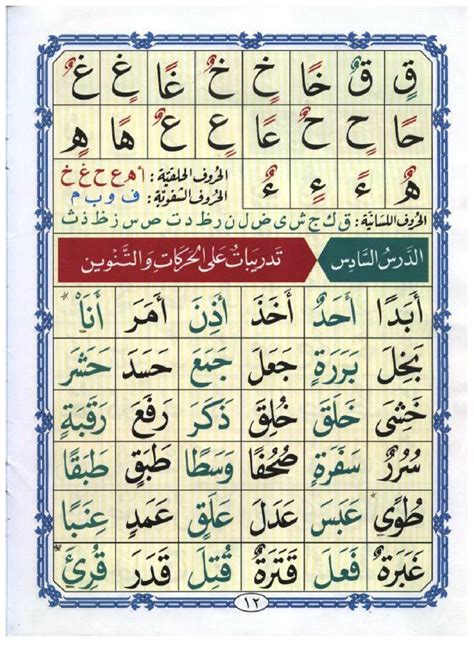 قٍ قٌ خًا خٍ خٌ غًا غٍ غٌ
حًا حٍ حٌ عًا عٍ عٌ هًا هٍ
هٌ ءً ءٍ ءٌ
الحُرُوف الحَلْقِيَّة : أ ه ع ح غ خ
الحُرُوف الشَّفَوِيَّة : ف و ب م
الحُرُوف اللِّسَانِيَّة : ق ك ج ش ي ض ل ن ر ط د ت ص س ز ظ ذ ث
الدَّرْسُ السَّادِس
تَدْرِيبَاتٌ عَلَى الحَرَكَاتِ وَالتَّنْوِين
أَبَدًا أَحَدٌ أَخَذَ أَذِنَ أَمَرَ أَنَا۠
بَخِلَ بَرَرَةٍ جَعَلَ جَمَعَ حَسَدَ حَشَرَ
خَشِيَ خَلَقَ خُلِقَ ذَكَرَ رَفَعَ رَقَبَةٍ
سُرُرٌ سَفَرَةٍ صُحُفًا وَسَطًا طَبَقٍ طَبَقًا
طُوًى عَبَسَ عَدَلَ عَلَقٍ عَمَدٍ عِنَبًا
غَبَرَةٌ فَعَلَ قَتَرَةٌ قُتِلَ قَدَرَ قُرِئَ
١٢